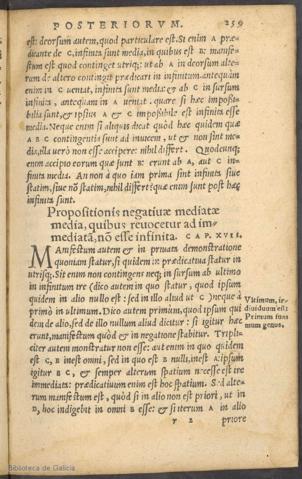 POSTERIORVM. 259
est: deorsum autem, quod particulare est. Si enim A præ=
dicante de C, infinita sunt media, in quibus est B: manife=
stum est quod continget utiq;: ut ab A in deorsum alte=
rum de altero contingit prædicari in infinitum. antequàm
enim in C uenit, infinita sunt media: & ab C in sursum
infinita, antequàm in A uenat. quare si hæc impossi=
bilia sunt, & ipsius A & C impossibile est infinita esse
media. Neque enim si aliquis dicat quòd hæc quidem quæ
A B C contingentia sunt ad inuicem, ut non sint me=
dia, illa uerò non esse accipere: nihil differt. Quodcunq;
enim accipio eorum quæ sunt B: erunt ab A, aut C in=
finita media. An non à quo iam prima sint infinita siue
statim, siue nō statim, nihil differt: quæ enim sunt post hæc
infinita sunt.
Propositionis negatiuæ mediatæ
media, quibus reuocetur ad im=
mediatā, nō esse infinita. CAP. XVII.
MAnifestum autem & in priuata demonstratione
quoniam statur, si quidem in prædicatiua statur in
utrisq;. Sit enim non contingens neq; in sursum ab ultimo
in infinitum ire (dico autem in quo statur, quod ipsum
quidem in alio nullo est: sed in illo aliud ut C) neque à
primò in ultimum. Dico autem primum, quod ipsum qui
dem de alio, sed de illo nullum aliud dicitur: si igitur hæc
erunt, manifestum quòd & in negatione stabitur. Tripli=
citer autem monstratur non esse: aut enim in quo quidem
est C, B inest omni, sed in quo est B nulli, inest A: ipsum
igitur B C, & semper alterum spatium necesse est ire
immediata: prædicatiuum enim est hoc spatium. Sed alte=
rum manifestum est, quòd si in alio non est priori, ut in
D, hoc indigebit in omni B esse: & si iterum A in alio
Y 2 priore
Vltimum, in=
diuiduum est:
Primum sum
mum genus.
Biblioteca de Galicia